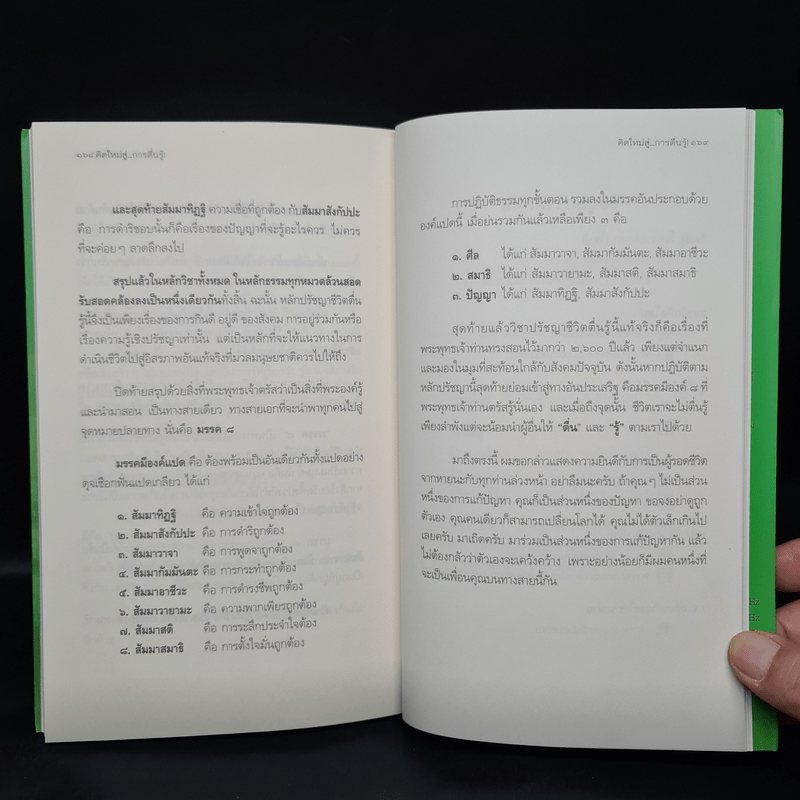 ๑๖๘ คิดใหม่สู่...การตื่นรู้!
และสุดท้ายสัมมาทิฏฐิ ความเชื่อที่ถูกต้อง กับสัมมาสังกัปปะ
คือ การดำริชอบนั้นก็คือเรื่องของปัญญาที่จะรู้อะไรควร ไม่ควร
ที่จะค่อยๆ ลาดลึกลงไป
สรุปแล้วในหลักวิชาทั้งหมด ในหลักธรรมทุกหมวดล้วนสอด
รับสอดคล้องลงเป็นหนึ่งเดียวกันทั้งสิ้น ฉะนั้น หลักปรัชญาชีวิตตื่น
รู้นี้จึงเป็นเพียงเรื่องของการกินดี อยู่ดี ของสังคม การอยู่ร่วมกันหรือ
เรื่องความรู้เชิงปรัชญาเท่านั้น แต่เป็นหลักที่จะให้แนวทางในการ
ดำเนินชีวิตไปสู่อิสรภาพอันแท้จริงที่มวลมนุษยชาติควรไปให้ถึง
ปิดท้ายสรุปด้วยสิ่งที่พระพุทธเจ้าตรัสว่าเป็นสิ่งที่พระองค์รู้
และนำมาสอน เป็นทางสายเดียว ทางสายเอกที่จะนำพาทุกคนไปสู่
จุดหมายปลายทาง นั่นคือ มรรค ๘
มรรคมีองค์แปด คือ ต้องพร้อมเป็นอันเดียวกันทั้งแปดอย่าง
ดุจเชือกฟั่นแปดเกลียว ได้แก่
๑. สัมมาทิฏฐิ คือ ความเข้าใจถูกต้อง
๒. สัมมาสังกัปปะ คือ การดำริถูกต้อง
๓. สัมมาวาจา คือ การพูดจาถูกต้อง
๔. สัมมากัมมันตะ คือ การกระทำถูกต้อง
๕. สัมมาอาชีวะ คือ การดำรงชีพถูกต้อง
๖. สัมมาวายามะ คือ ความพากเพียรถูกต้อง
๗. สัมมาสติ คือ การระลึกประจำใจถูกต้อง
๘. สัมมาสมาธิ คือ การตั้งใจมั่นถูกต้อง
คิดใหม่สู่...การตื่นรู้! ๑๖๙
การปฏิบัติธรรมทุกขั้นตอน รวมลงในมรรคอันประกอบด้วย
องค์แปดนี้ เมื่อย่นรวมกันแล้วเหลือเพียง ๓ คือ
๑. ศีล ได้แก่ สัมมาวาจา, สัมมากัมมันตะ, สัมมาอาชีวะ
๒. สมาธิ ได้แก่ สัมมาวายามะ, สัมมาสติ, สัมมาสมาธิ
๓. ปัญญา ได้แก่ สัมมาทิฏฐิ, สัมมาสังกัปปะ
สุดท้ายแล้ววิชาปรัชญาชีวิตตื่นรู้นี้แท้จริงก็คือเรื่องที่
พระพุทธเจ้าท่านทรงสอนไว้มากว่า ๒,๖๐๐ ปีแล้ว เพียงแต่จำแนก
และมองในมุมที่สะท้อนใกล้กับสังคมปัจจุบัน ดังนั้นหากปฏิบัติตาม
หลักปรัชญานี้สุดท้ายย่อมเข้าสู่ทางอันประเสริฐ คือมรรคมีองค์ ๘ ที่
พระพุทธเจ้าท่านตรัสรู้นั่นเอง และเมื่อถึงจุดนั้น ชีวิตเราจะไม่ตื่นรู้
เพียงลำพังแต่จะน้อมนำผู้อื่นให้ "ตื่น" และ "รู้" ตามเราไปด้วย
มาถึงตรงนี้ ผมขอกล่าวแสดงความยินดีกับการเป็นผู้รอดชีวิต
จากหายนะกับทุกท่านล่วงหน้า อย่าลืมนะครับ ถ้าคุณๆ ไม่เป็นส่วน
หนึ่งของการแก้ปัญหา คุณก็เป็นส่วนหนึ่งของปัญหา ขอจงอย่าดูถูก
ตัวเอง คุณคนเดียวก็สามารถเปลี่ยนโลกได้ คุณไม่ได้ตัวเล็กเกินไป
เลยครับ มาเถิดครับ มาร่วมเป็นส่วนหนึ่งของการแก้ปัญหากัน แล้ว
ไม่ต้องกลัวว่าตัวเองจะเคว้งคว้าง เพราะอย่างน้อยก็มีผมคนหนึ่งที่
จะเป็นเพื่อนคุณบนทางสายนี้กัน